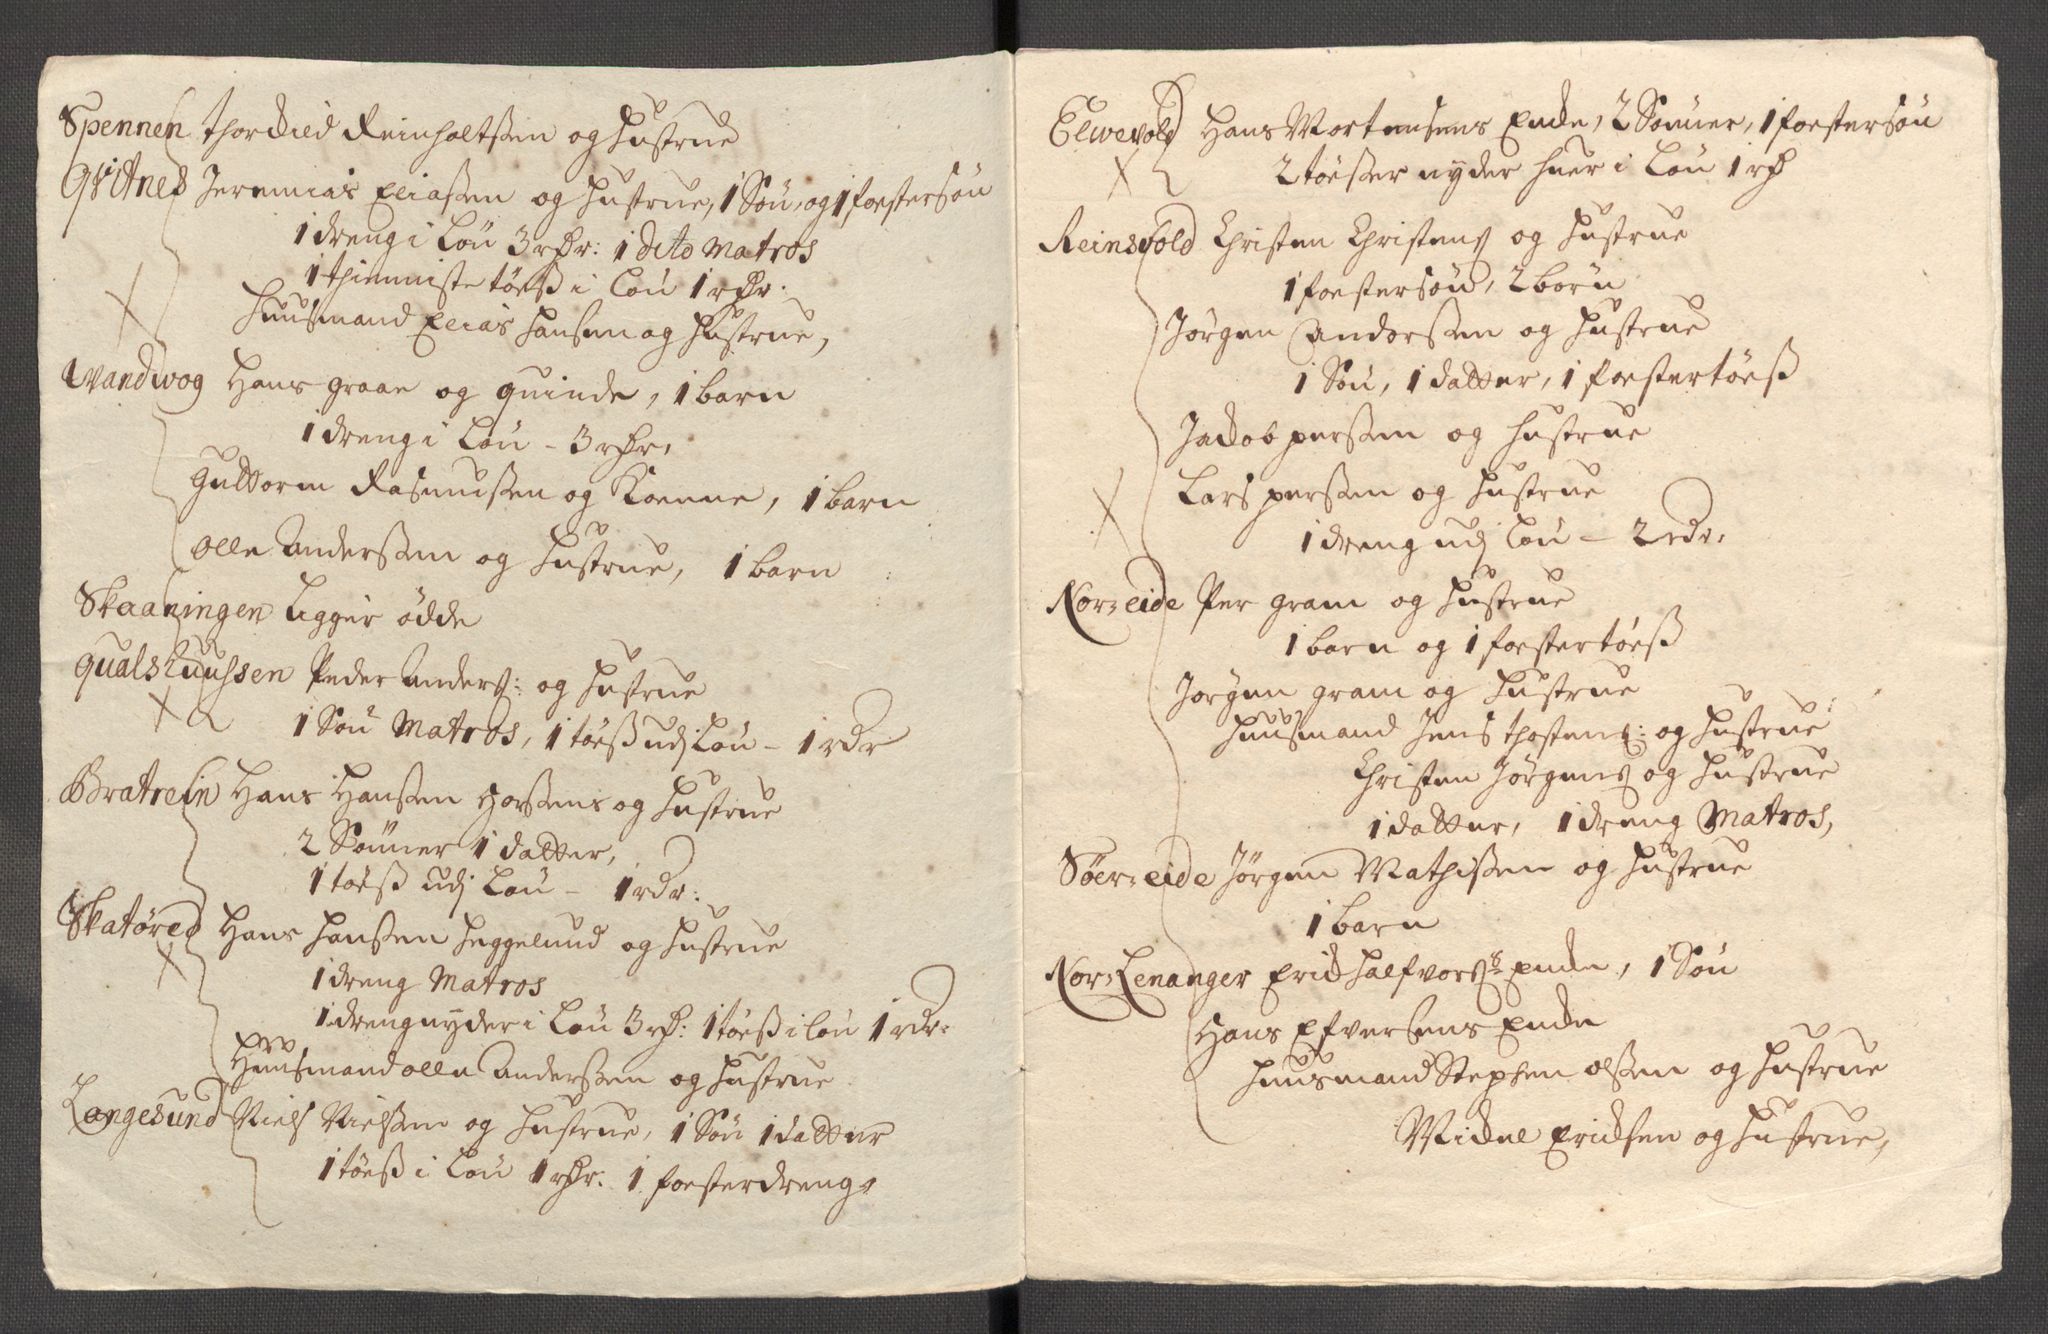 Spennen Thorchild Reinholtsen og Hustrue
Qvitnes Jeremias Eliassen og Hustrue, 1 Søn, og 1 foestersøn
1 dreng i Løn 3 rdr: 1 dito Matros
1 thienniste tøes i Løn 1 rdr:
Huusmand Elias Hansen og Hustrue,
Wandwog Hans graae og quinde, 1 barn
1 dreng i Løn - 3 rdr.
Guttorm Rasmussen og Koenne, 1 barn
Olle Anderssen og Hustrue, 1 barn
Skaaningen Ligger ödde
Qualshuussen Peder Anders: og Hustrue
1 Søn Matros, 1 tøes udj Løn - 1 rdr
Bratrein Hans Hanssen og Hustrue
2 Sønner 1 datter,
1 tøes udj Løn - 1 rdr:
Skatøren Hans Hanssen Heggelund og Hustrue
1 dreng Matros
1 dreng nyder i Løn 3 rd: 1 tøes i løn 1 rdr.
Huusmand Olle Anderssen og Hustrue
Langesund Niels Nielssen og Hustrue, 1 Søn 1 datter
1 tøes i Løn 1 rdr: 1 foesterdreng.
Elwevold Hans Mortensens Encke, 2 Sønner, 1 foestersøn
2 tøesser nyder huer i Løn 1 rd
Reinsvold Christen Christens og Hustrue
1 foestersøn, 2 børn
Jørgen Anderssen og Hustrue
1 Søn, 1 datter, 1 foestertøes
Jacob perssen og Hustrue
Lars perssen og Hustrue
1 dreng udj Løn - 2 rdr.
Nor-eide Per gram og Hustrue
1 barn og 1 foestertøes
Jørgen gram og Hustrue
Huusmand Jens Thostens: og Hustrue
Christen Jørgens og Hustrue
1 datter, 1 dreng Matros,
Søer-eide Jørgen Mathissen og Hustrue
1 barn
Nor-Lenanger Erich Halfvors Encke, 1 Søn
Hans Efversens Encke
Huusmand Stephen olssen og Hustrue
Michel Erichsen og Hustrue,